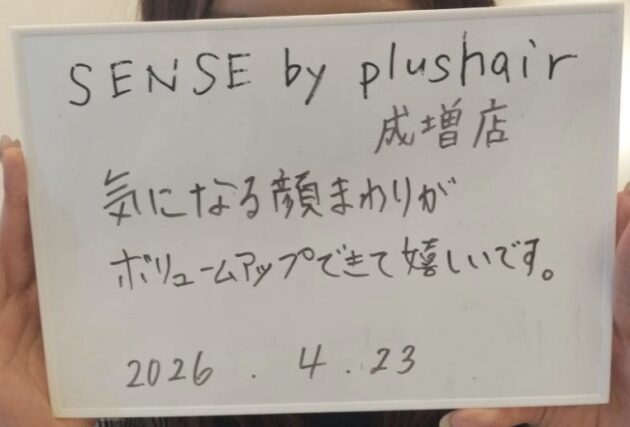 SENSE by plushair
成増店
気になる顔まわりが
ボリュームアップできて嬉しいです。
2026 . 4 . 23